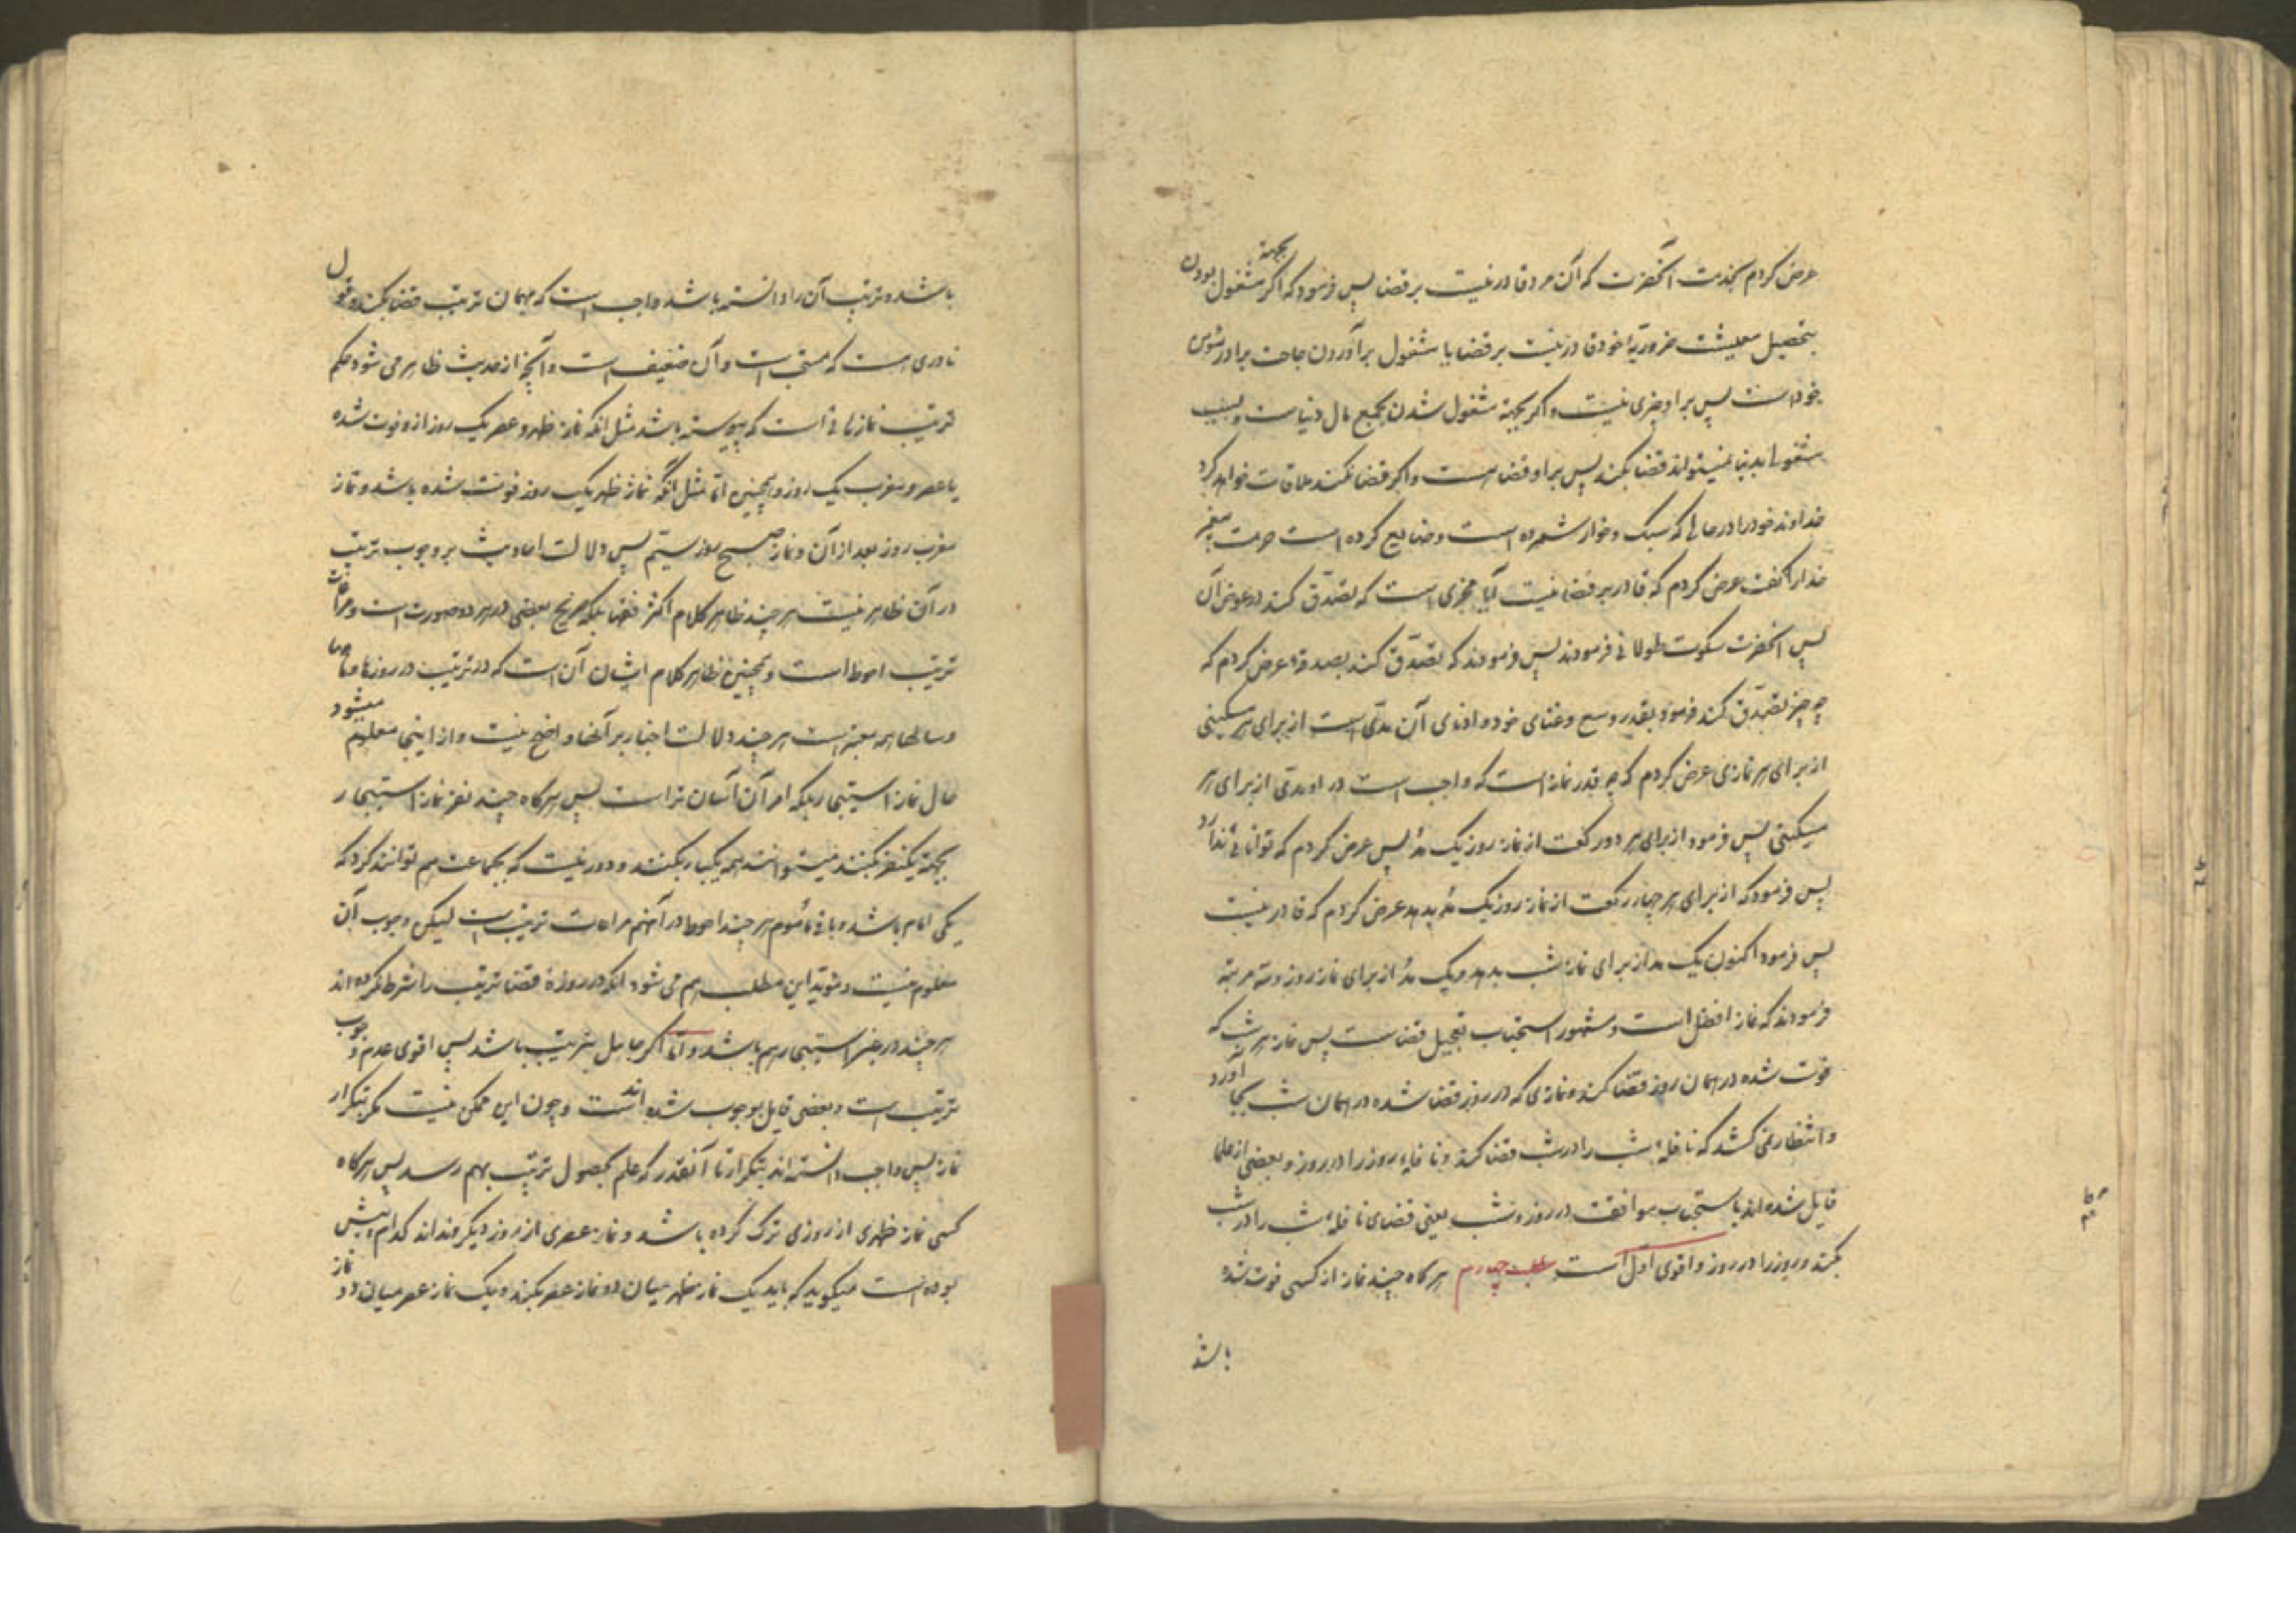 عرض کردم بخدمت آنحضرت که آن مرد قادر نیست بر قضا پس فرمود که اگر بجهة مشغول بودن
بتحصیل معیشت ضروریه خود قادر نیست بر قضا یا مشغول برآوردن حاجت برادر مؤمن
خود است پس بر او چیزی نیست و اگر بجهة مشغول شدن بجمیع مال دنیاست و بسبب
مشغولی بدنیا نمیتواند قضا بکند پس بر او قضا هست و اگر قضا نکند ملاقات خواهد کرد
خداوند خود را در حالی که سبک و خوار شمرده است و ضایع کرده است حرمت پیغمبر
خدا را گفت عرض کردم که قادر بر قضا نیست آیا مجزی است که تصدّق کند در عوض آن
پس آنحضرت سکوت طولانی فرمودند پس فرمودند که تصدّق کند بصدقه عرض کردم که
چه چیز تصدّق کند فرمود بقدر وسع و غنای خود و ادنای آن مدّی است از برای هر مسکینی
از برای هر نمازی عرض کردم که چه قدر نماز است که واجب است در او مدّی از برای هر
مسکینی پس فرمود از برای هر دو رکعت از نماز روز یک مدّ پس عرض کردم که توانائی ندارد
پس فرمود که از برای هر چهار رکعت از نماز روز یک مدّ بدهد عرض کردم که قادر نیست
پس فرمود اکنون یک مد از برای نماز شب بدهد و یک مدّ از برای نماز روز و سه مرتبه
فرمودند که نماز افضل است و مشهور استحباب تعجیل قضاست پس نماز هر شب که
فوت شده در همان روز قضا کند و نمازی که در روز قضا شده در همان شب بجا آورد
و انتظار نمی کشد که نافلهٔ شب را در شب قضا کند و نافلهٔ روز را در روز و بعضی از علما
قایل شده اند باستحباب موافقت در روز و شب یعنی قضای نافلهٔ شب را در شب
بکند و روز را در روز و اقوی اوّل است مطلب چهارم هر گاه چند نماز از کسی فوت شده
باشد
باشد و ترتیب آن را دانسته باشد واجب است که بهمان ترتیب قضا بکند و قول
نادری هست که مستحب است و آن ضعیف است و آنچه از حدیث ظاهر می شود حکم
ترتیب نمازهائی است که پیوسته باشد مثل آنکه نماز ظهر و عصر یک روز از او فوت شده
یا عصر و مغرب یک روز و همچنین امّا مثل آنکه نماز ظهر یک روز فوت شده باشد و نماز
مغرب روز بعد از آن و نماز صبح روز سیّم پس دلالت احادیث بر وجوب ترتیب
در آن ظاهر نیست هر چند ظاهر کلام اکثر فقها بلکه صریح بعضی در هر دو صورت است و مراعات
ترتیب احوط است و همچنین ظاهر کلام ایشان آن است که در ترتیب در روزها و ماهها
و سالها همه معتبر است هر چند دلالت اخبار بر آنها واضح نیست و از اینجا معلوم میشود
حال نماز استیجار بلکه امر آن آسان تر است پس هر گاه چند نفر نماز استیجار
بجهة یکنفر بکنند میتوانند همه یکبار بکنند و دور نیست که بجماعت هم توانند کرد که
یکی امام باشد و باقی مأموم هر چند احوط در آنهم مراعات ترتیب است لیکن وجوب آن
معلوم نیست و مؤید این مطلب هم می شود آنکه در روزهٔ قضا ترتیب را شرط نکرده اند
هر چند در غیر استیجار هم باشد و امّا اگر جاهل بترتیب باشد پس اقوی عدم وجوب
ترتیب است و بعضی قایل بوجوب شده اند و چون این ممکن نیست مگر بتکرار
نماز پس واجب دانسته اند بتکرار تا آنقدر که علم بحصول ترتیب بهم رسد پس هر گاه
کسی نماز ظهری از روزی ترک کرده باشد و نماز عصری از روز دیگر و نداند کدام پیش
بوده است میگوید که باید یک نماز ظهر میان دو نماز عصر بکند و یک نماز عصر میان دو نماز